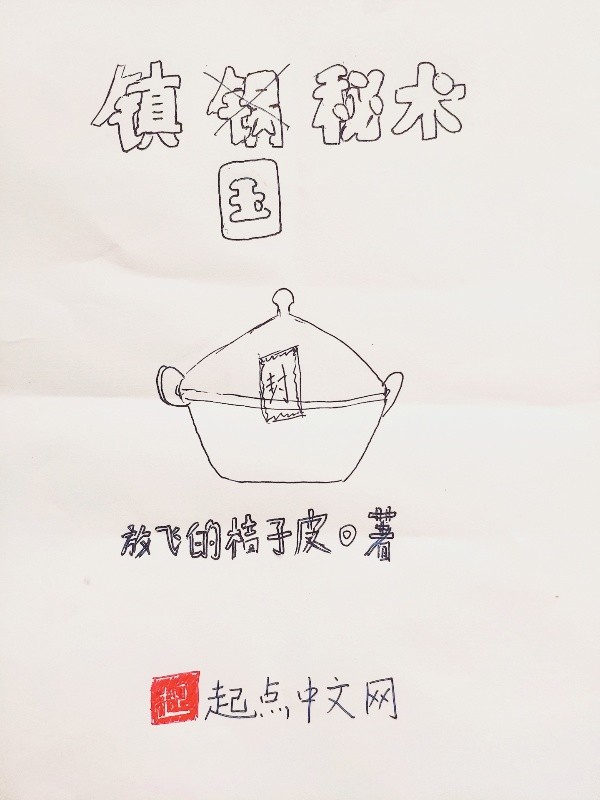 镇锅秘术
国
封
放飞的桔子皮◎著
起 起点中文网